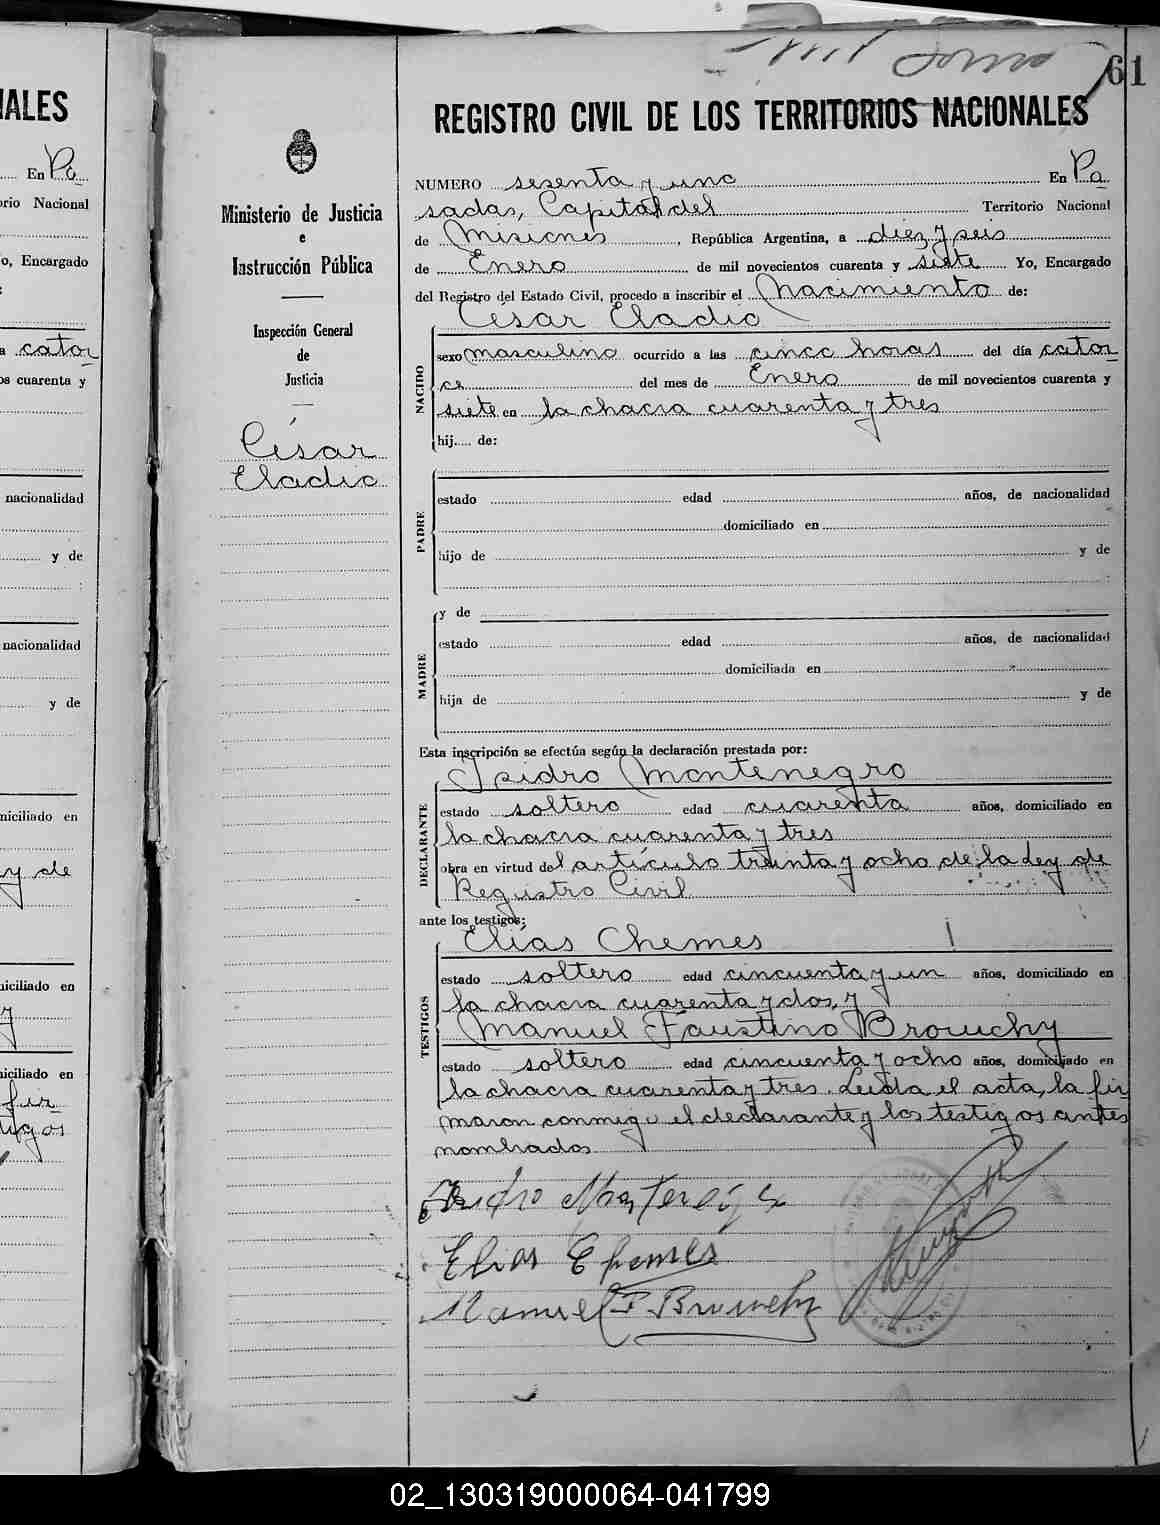 61
REGISTRO CIVIL DE LOS TERRITORIOS NACIONALES
NUMERO sesenta y uno En Po
sadas, Capital del Territorio Nacional
de Misiones, República Argentina, a diez y seis
de Enero de mil novecientos cuarenta y siete Yo, Encargado
del Registro del Estado Civil, procedo a inscribir el Nacimiento de:
César Eladio
NACIDO
sexo masculino ocurrido a las cinco horas del día cator
ce del mes de Enero de mil novecientos cuarenta y
siete en la chacra cuarenta y tres
hij.... de:
PADRE
estado edad años, de nacionalidad
domiciliado en
hijo de y de
MADRE
y de
estado edad años, de nacionalidad
domiciliada en
hija de y de
Esta inscripción se efectúa según la declaración prestada por:
Isidro Montenegro
DECLARANTE
estado soltero edad cuarenta años, domiciliado en
la chacra cuarenta y tres
obra en virtud del artículo treinta y ocho de la Ley de
Registro Civil
ante los testigos:
Elías Chemes
TESTIGOS
estado soltero edad cincuenta y un años, domiciliado en
la chacra cuarenta y dos, y
Manuel Faustino Brouchy
estado soltero edad cincuenta y ocho años, domiciliado en
la chacra cuarenta y tres. Leida el acta, la fir
maron conmigo el declarante y los testigos antes
nombrados
Isidro Montenegro
Elias Chemes
Manuel F. Brouchy
Ministerio de Justicia
e
Instrucción Pública
Inspección General
de
Justicia
César
Eladio
IALES
En Po
rio Nacional
o, Encargado
a cator
os cuarenta y
nacionalidad
y de
nacionalidad
y de
niciliado en
y de
niciliado en
y
niciliado en
fir
tigos
02_130319000064-041799